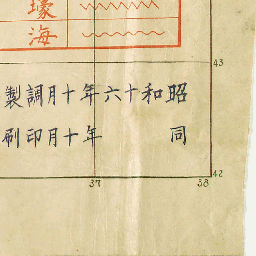 壕
海
昭和十六年十月調製
同 年十月印刷
43
42
37
38